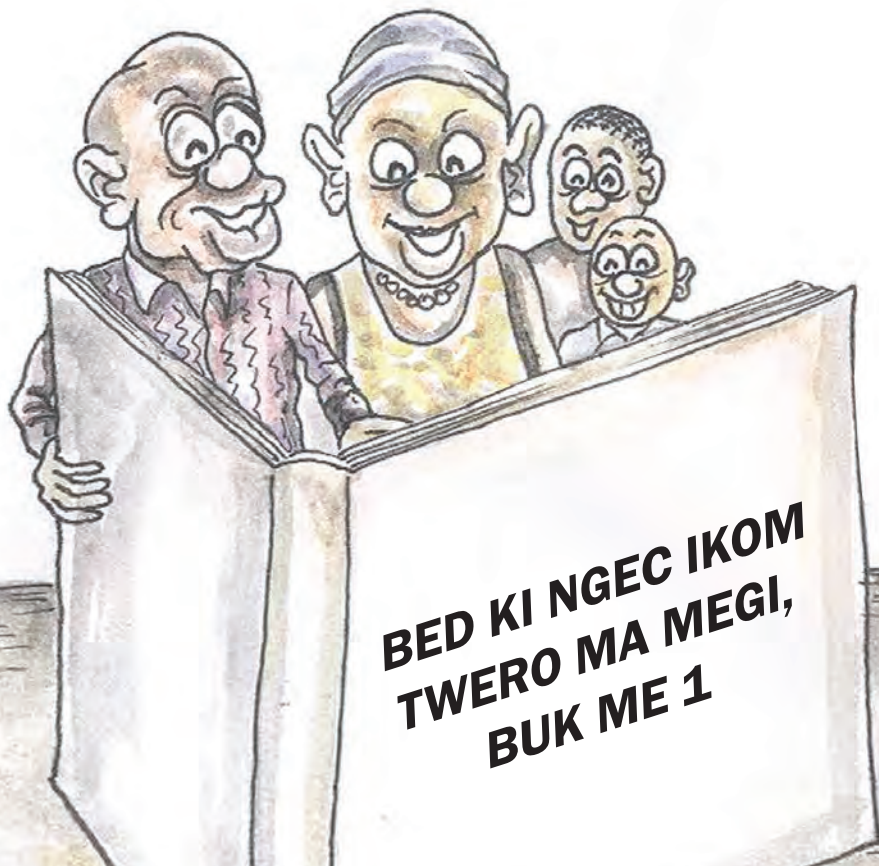 BED KI NGEC IKOM
TWERO MA MEGI,
BUK ME 1